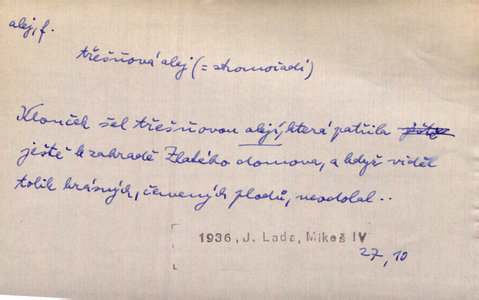 alej, f.
třešňová alej (= stromořadí)
Klouček šel třešňovou alejí, která patřila ještě
ještě k zahradě Zlatého domova, a když viděl
tolik krásných, červených plodů, neodolal..
1936, J. Lada, Mikeš IV
27, 10